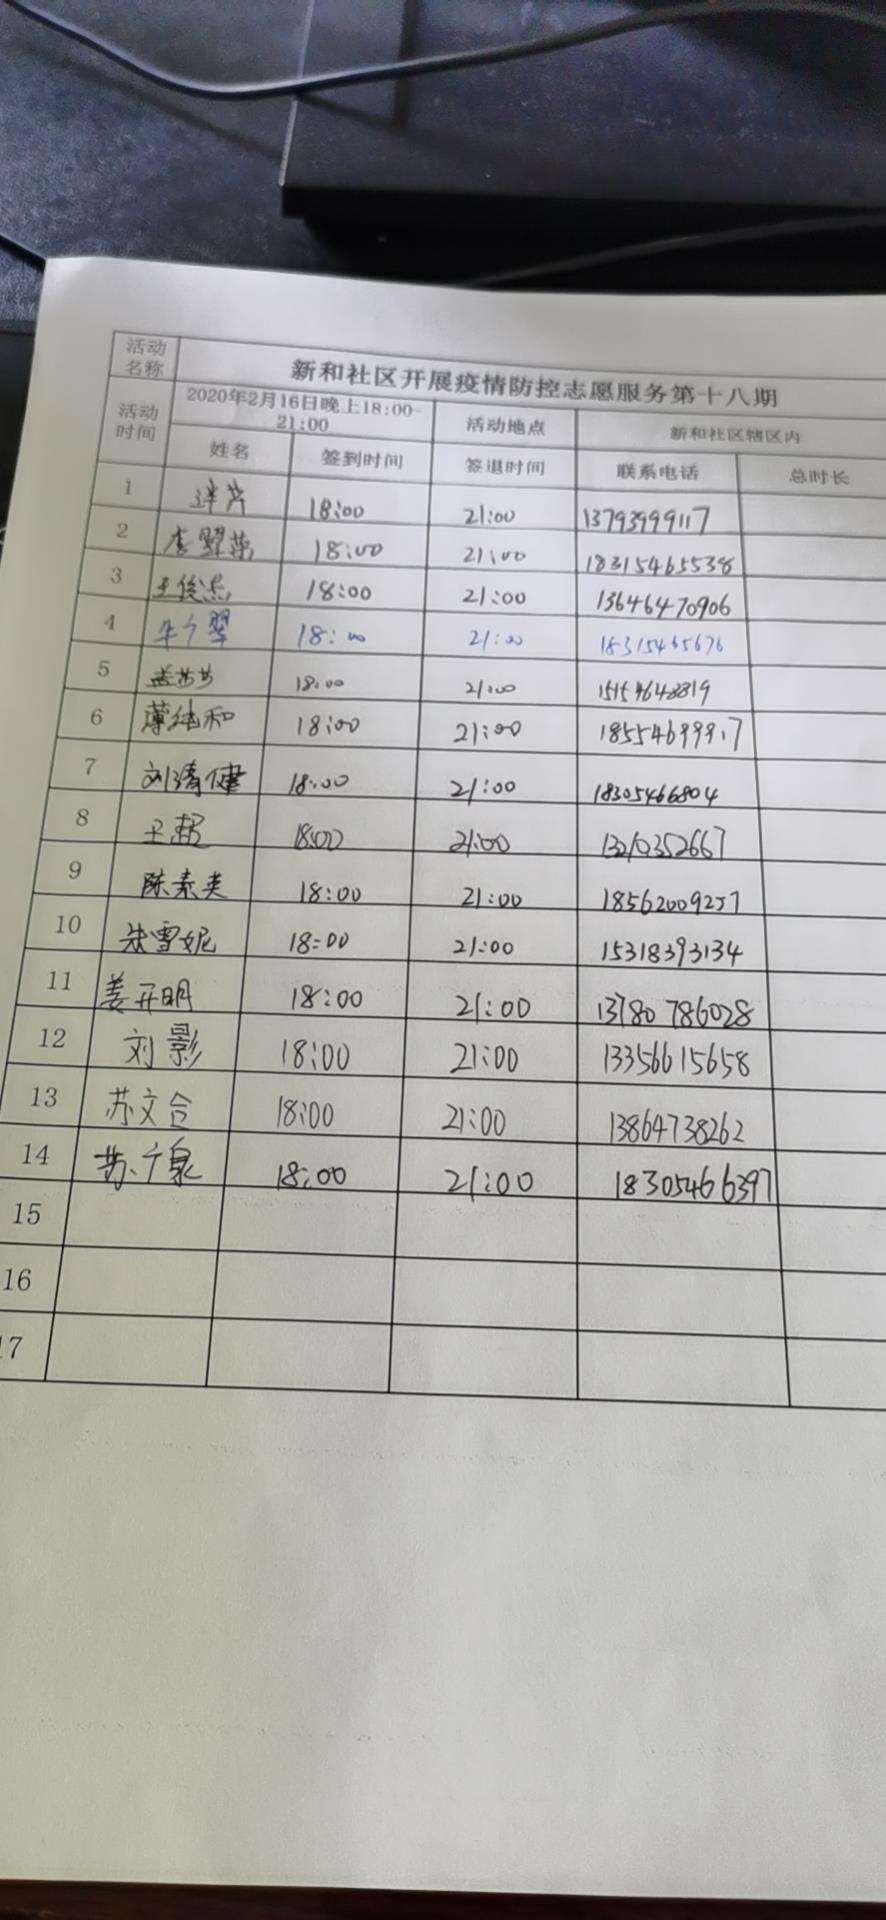 活动名称 新和社区开展疫情防控志愿服务第十八期
活动时间 2020年2月16日晚上18:00-21:00 活动地点 新和社区辖区内
姓名 签到时间 签退时间 联系电话 总时长
1 18:00 21:00 13793999117
2 李翠萍 18:00 21:00 18315465538
3 王俊杰 18:00 21:00 13646470906
4 牛个翠 18:00 21:00 18315465676
5 孟莎莎 18:00 21:00
6 薄纯和 18:00 21:00
7 刘清健 18:00 21:00 18305466804
8 王超 18:00 21:00
9 陈素英 18:00 21:00 18562009257
10 朱雪妮 18:00 21:00 15318393134
11 姜开明 18:00 21:00 13780786028
12 刘影 18:00 21:00 13356615658
13 苏文合 18:00 21:00 13864738262
14 苏个泉 18:00 21:00 18305466397
15
16
17